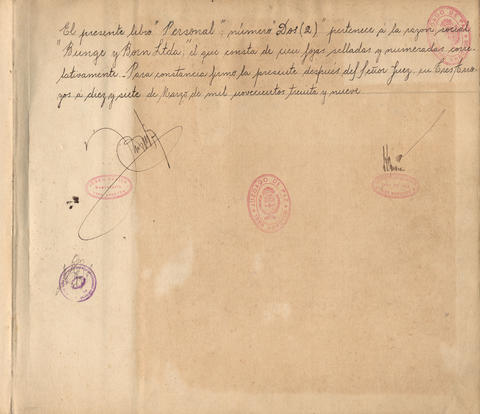 El presente libro "Personal", número "Dos (2)" pertenece á la razón social
"Bunge y Born Ltda," el que consta de cien fojas selladas y numeradas corre-
lativamente. Para constancia firmo la presente después del Señor Juez, en Tres Arro-
yos a diez y siete de Marzo de mil novecientos treinta y nueve
JUZGADO DE PAZ